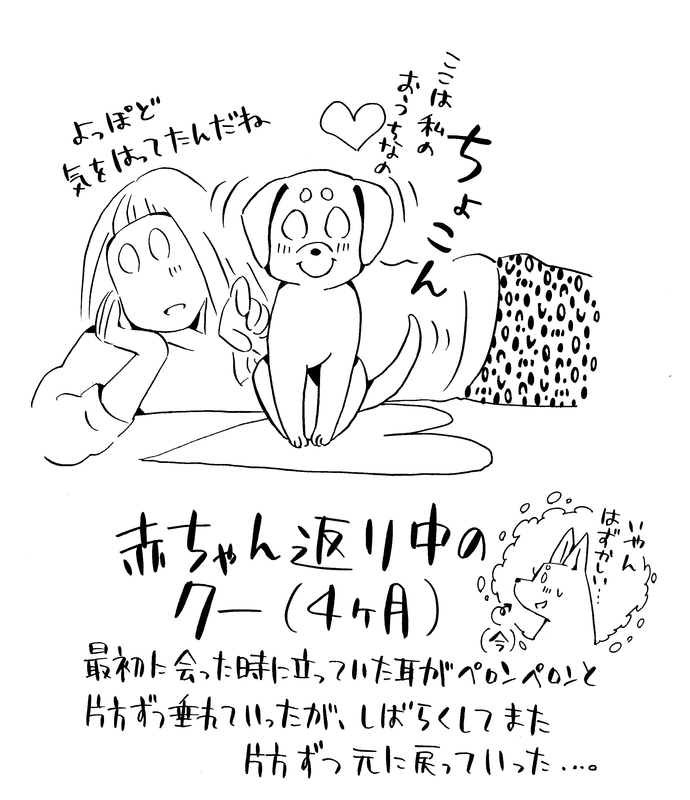 よっぽど
気をはってたんだね
ここは私の
おうちなの
ちょこん
赤ちゃん返り中の
クー(4ヶ月)
いやん
はずかしい…
(今)
最初に会った時に立っていた耳がペロンペロンと
片方ずつ垂れていったが、しばらくしてまた
片方ずつ元に戻っていった…。